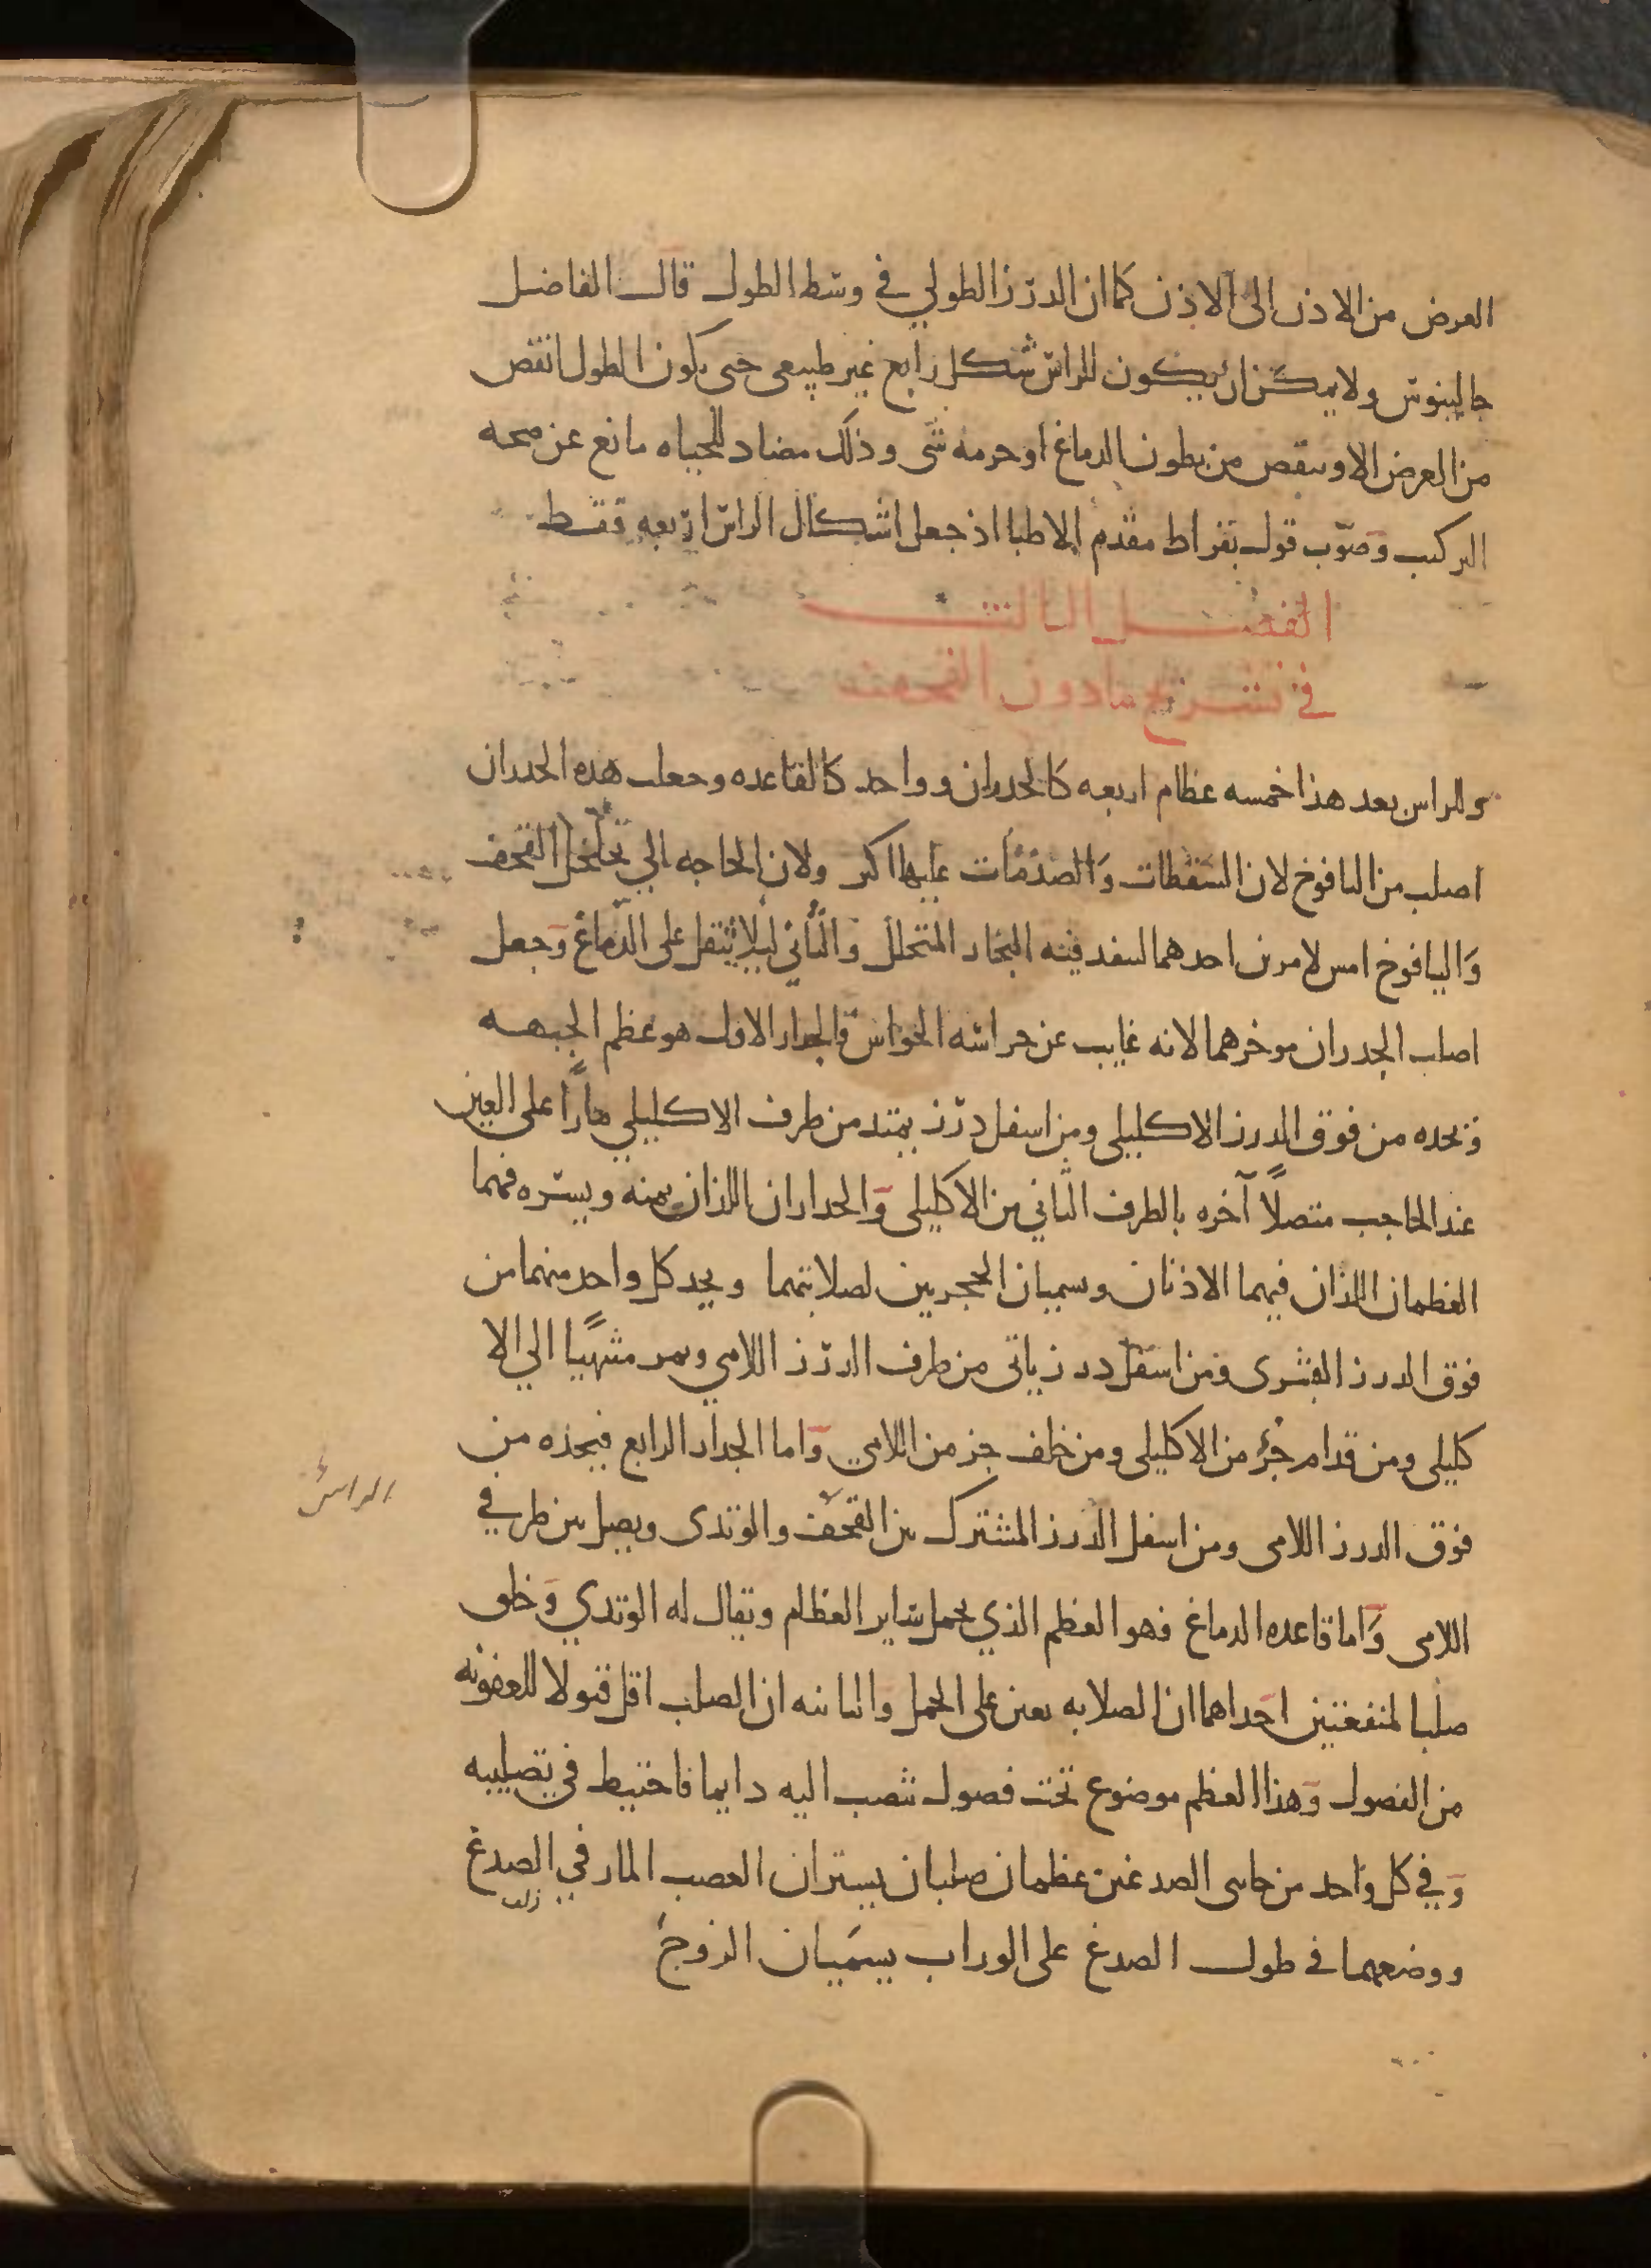 العرض من الاذن الى الاذن كما ان الدرز الطولي في وسط الطول قال الفاضل
جالينوس ولا يمكن ان يكون للراس شكل رابع غير طبيعى حتى يكون الطول انقص
من العرض الا وينقص من بطون الدماغ او جرمه شى وذلك مضاد للحياه مانع عن صحه
التركيب وصوّب قول بقراط مقدم الاطبا اذ جعل اشكال الراس اربعه فقط
الفصل الثالث
في تشريح مادون القحف
وللراس بعد هذا خمسه عظام اربعه كالجدران وواحد كالقاعده وجعلت هذه الجدران
اصلب من اليافوخ لان السقطات والصدمات عليها اكثر ولان الحاجه الي تخلخل القحف
واليافوخ امس لامرين احدهما لينفد فيه البخار المتحلل والثاني ليلا يثقل على الدماغ وجعل
اصلب الجدران موخرهما لانه غايب عن حراسه الحواس فالجدار الاول هو عظم الجبهه
ويحده من فوق الدرز الاكليلى ومن اسفل درز يمتد من طرف الاكليلي مارًا على العين
عند الحاجب متصلاً آخره بالطرف الثاني من الاكليلى والجداران اللذان يمنه ويسره فهما
العظمان اللذان فيهما الاذنان ويسميان الحجريين لصلابتهما ويحد كل واحد منهما من
فوق الدرز القشرى ومن اسفل درز ياتى من طرف الدرز اللامي ويمر منتهيًا الي الا
كليلى ومن قدام جزؤ من الاكليلى ومن خلف جز من اللامي واما الجدار الرابع فيحده من
الراس
فوق الدرز اللامى ومن اسفل الدرز المشترك بين القحف والوتدى ويصل بين طرفي
اللامى واما قاعده الدماغ فهو العظم الذي يحمل ساير العظام ويقال له الوتدي وخلق
صلبا لمنفعتين احداهما ان الصلابه تعين على الحمل والثانيه ان الصلب اقل قبولا للعفونه
من الفصول وهذا العظم موضوع تحت فصول تنصب اليه دايما فاحتيط في تصليبه
وفي كل واحد من جانبى الصدغين عظمان صلبان يستران العصب المار في الصدغ
ووضعهما في طول الصدغ على الوراب يسميان الزوج